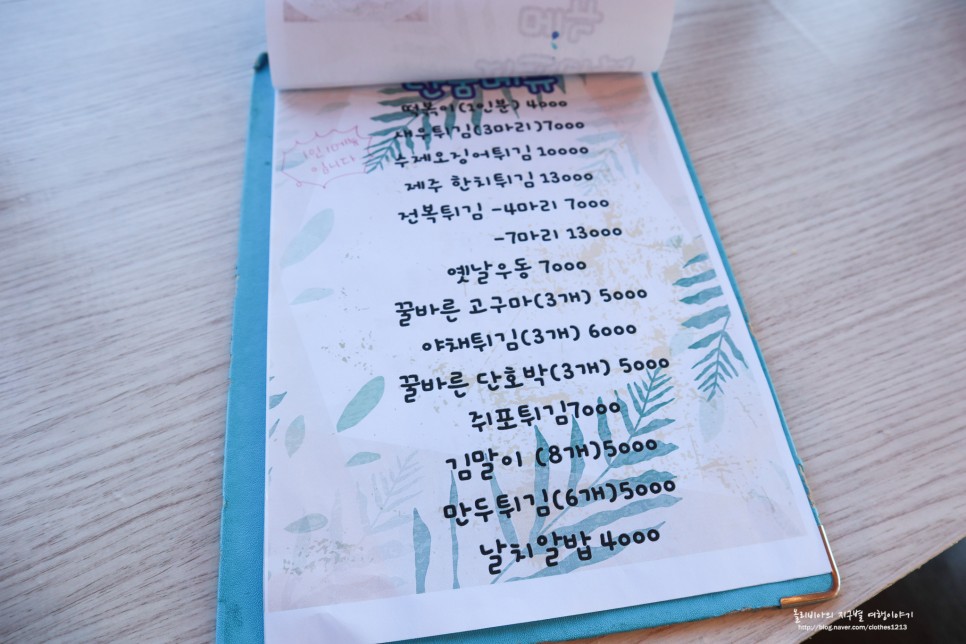 단품메뉴
떡볶이(1인분) 4000
새우튀김(3마리)7000
1인1메뉴
입니다
수제오징어튀김 10000
제주 한치튀김 13000
전복튀김 -4마리 7000
-7마리 13000
옛날우동 7000
꿀바른 고구마(3개) 5000
야채튀김(3개) 6000
꿀바른 단호박(3개) 5000
쥐포튀김7000
김말이 (8개)5000
만두튀김(6개)5000
날치알밥 4000
올리비아의 지구별 여행이야기
http://blog.naver.com/clothes1213